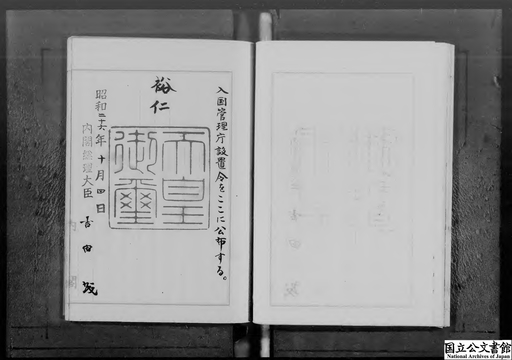 入国管理庁設置令をここに公布する。
裕仁
天皇御璽
昭和二十六年十月四日
内閣総理大臣 吉田茂
国立公文書館
National Archives of Japan